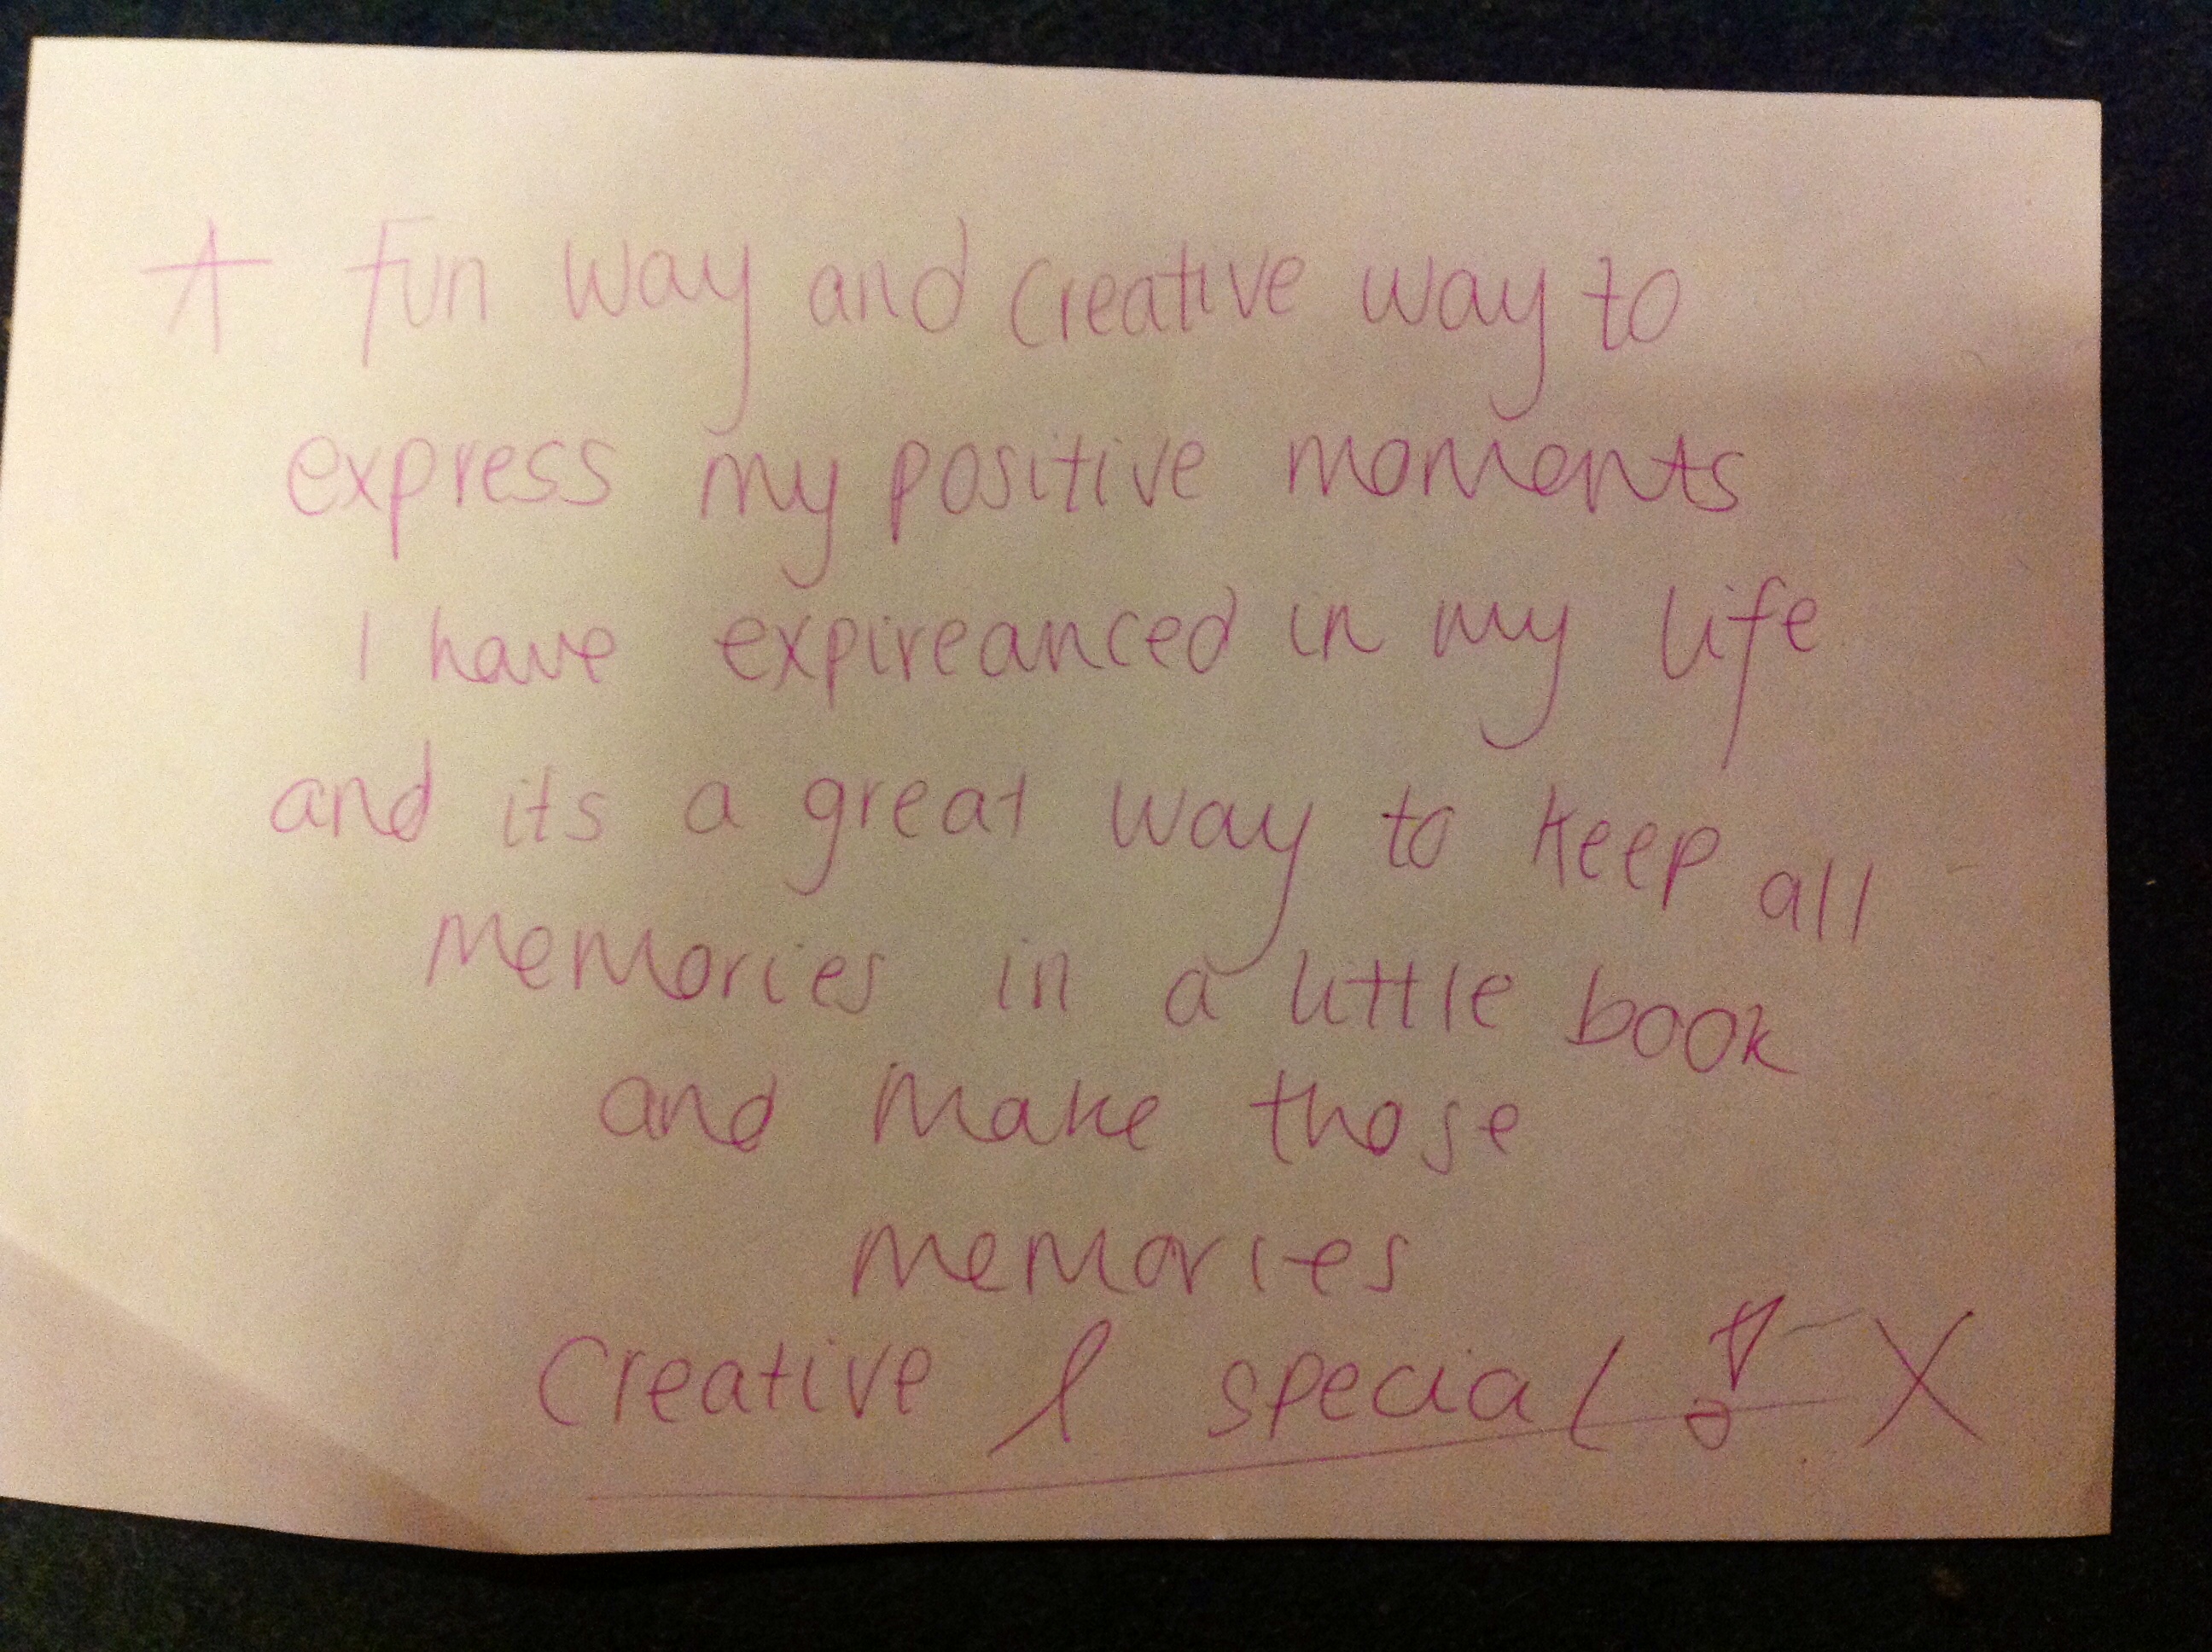 A fun way and creative way to
express my positive moments
I have expireanced in my life
and its a great way to keep all
memories in a little book
and make those
memories
Creative & special ! X